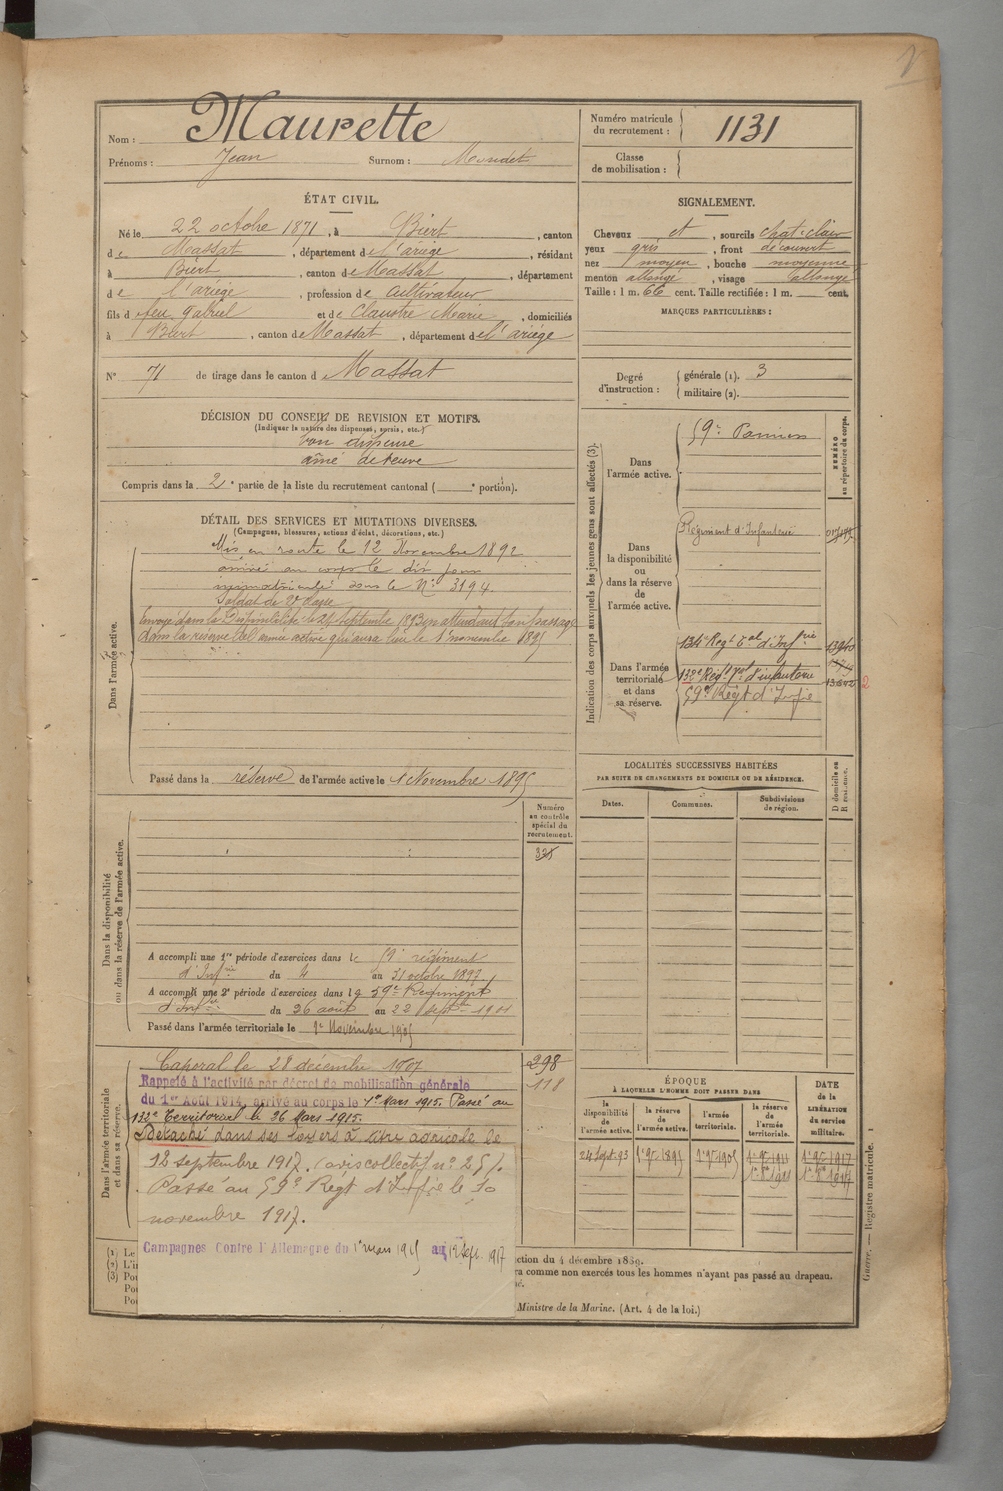 Nom : Maurette
Prénoms : Jean Surnom :
Numéro matricule du recrutement : 1131
Classe de mobilisation :
ÉTAT CIVIL.
Né le 22 octobre 1871, à Biert, canton
de Massat, département de l'ariège, résidant
à Biert, canton de Massat, département
de l'ariège, profession de cultivateur
fils de feu gabriel et de Claustre Marie, domiciliés
à Biert, canton de Massat, département de l'ariége
N° 71 de tirage dans le canton d Massat
DÉCISION DU CONSEIL DE REVISION ET MOTIFS.
(Indiquer la nature des dispenses, sursis, etc.)
bon dispensé
aîné de veuve
Compris dans la 2e partie de la liste du recrutement cantonal ( e portion).
SIGNALEMENT.
Cheveux et, sourcils chat: clair
yeux gris, front découvert
nez moyen, bouche moyenne
menton allongé, visage allongé
Taille : 1 m. 66 cent. Taille rectifiée : 1 m. cent.
MARQUES PARTICULIÈRES :
Degré d'instruction : générale (1). 3
militaire (2).
DÉTAIL DES SERVICES ET MUTATIONS DIVERSES.
(Campagnes, blessures, actions d'éclat, décorations, etc.)
Dans l'armée active.
Mis en route le 12 Novembre 1892
arrivé au corps le dit jour
immatriculé sous le N° 3194
Soldat de 2e classe
Envoyé dans la Disponibilité le 24 septembre 1893 en attendant son passage
dans la réserve de l'armée active qui aura lieu le 1er novembre 1895
Passé dans la réserve de l'armée active le 1 Novembre 1895
Indication des corps auxquels les jeunes gens sont affectés (3).
NUMÉRO au répertoire du corps.
Dans l'armée active.
59e Pamiers
Dans la disponibilité ou dans la réserve de l'armée active.
Régiment d'Infanterie
Dans l'armée territoriale et dans sa réserve.
134e Regt Tal d'Infrie
132e Regt Tal d'infanterie
59e Regt d'Infie
LOCALITÉS SUCCESSIVES HABITÉES
PAR SUITE DE CHANGEMENTS DE DOMICILE OU DE RÉSIDENCE.
Dates. Communes. Subdivisions de région. D domicile ou R résidence.
Dans la disponibilité ou dans la réserve de l'armée active.
Numéro au contrôle spécial du recrutement.
325
A accompli une 1re période d'exercices dans le 59e régiment
d'Infrie du 4 au 31 octobre 1897
A accompli une 2e période d'exercices dans le 59e Regiment
d'Infie du 26 août au 22 septbre 1901
Passé dans l'armée territoriale le 1er Novembre 1905
Dans l'armée territoriale et dans sa réserve.
298
118
Caporal le 28 décembre 1907
Rappelé à l'activité par décret de mobilisation générale
du 1er Août 1914, arrivé au corps le 1er Mars 1915. Passé au
132e Territorial le 26 Mars 1915.
Détaché dans ses foyers à titre agricole le
12 septembre 1917. (avis collectif n° 251.
Passé au 59e Regt d'Infie le 10
novembre 1917.
Campagnes Contre l'Allemagne du 1er mars 1915 au 12 Sept. 1917
ÉPOQUE
À LAQUELLE L'HOMME DOIT PASSER DANS
la disponibilité de l'armée active.
la réserve de l'armée active.
l'armée territoriale.
la réserve de l'armée territoriale.
DATE de la LIBÉRATION du service militaire.
24 Sept. 93 1er 9bre 1895 1er 9bre 1905 1er 9bre 1911 1er 9bre 1917
(1) Le
(2) L'in
(3) Pou
Pou
Pou
ction du 4 décembre 1889.
ra comme non exercés tous les hommes n'ayant pas passé au drapeau.
Ministre de la Marine. (Art. 4 de la loi.)
Guerre. — Registre matricule. 1